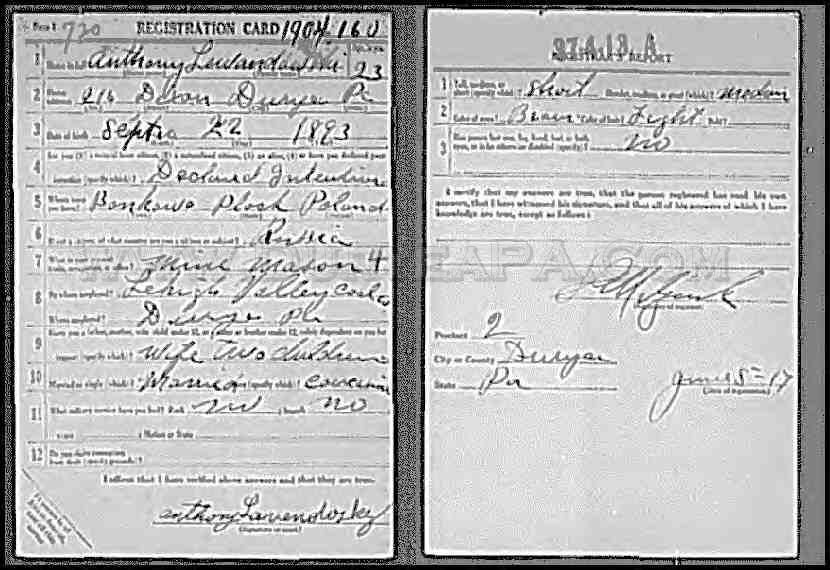 Form 1 720 REGISTRATION CARD 1904 160
1 Name in full Anthony Lewandowski Age, in yrs. 23
2 Home address 216 Dixon Duryea Pa
3 Date of birth Sept 22 1893
4 Are you (1) a natural-born citizen, (2) a naturalized citizen, (3) an alien, (4) or have you declared your
intention (specify which)? Declared Intention
5 Where were you born? Bonkowo Plosk Poland
6 If not a citizen, of what country are you a citizen or subject? Russia
7 What is your present trade, occupation, or office? Mine Mason 4
8 By whom employed? Lehigh Valley Coal Co
Where employed? Duryea Pa
9 Have you a father, mother, wife, child under 12, or a sister or brother under 12, solely dependent on you for
support (specify which)? Wife Two children
10 Married or single (which)? Married Race (specify which)? Caucasian
11 What military service have you had? Rank no ; branch no
years ; Nation or State
12 Do you claim exemption from draft (specify grounds)?
I affirm that I have verified above answers and that they are true.
anthony Lavendosky
(Signature or mark)
37-1-13 A
REGISTRAR'S REPORT
1 Tall, medium, or short (specify which)? Short Slender, medium, or stout (which)? Medium
2 Color of eyes? Brown Color of hair? Light Bald?
3 Has person lost arm, leg, hand, foot, or both eyes, or is he otherwise disabled (specify)? no
I certify that my answers are true, that the person registered has read his own
answers, that I have witnessed his signature, and that all of his answers of which I have
knowledge are true, except as follows:
(Signature of registrar)
Precinct 2
City or County Duryea
State Pa June 5-17
(Date of registration)